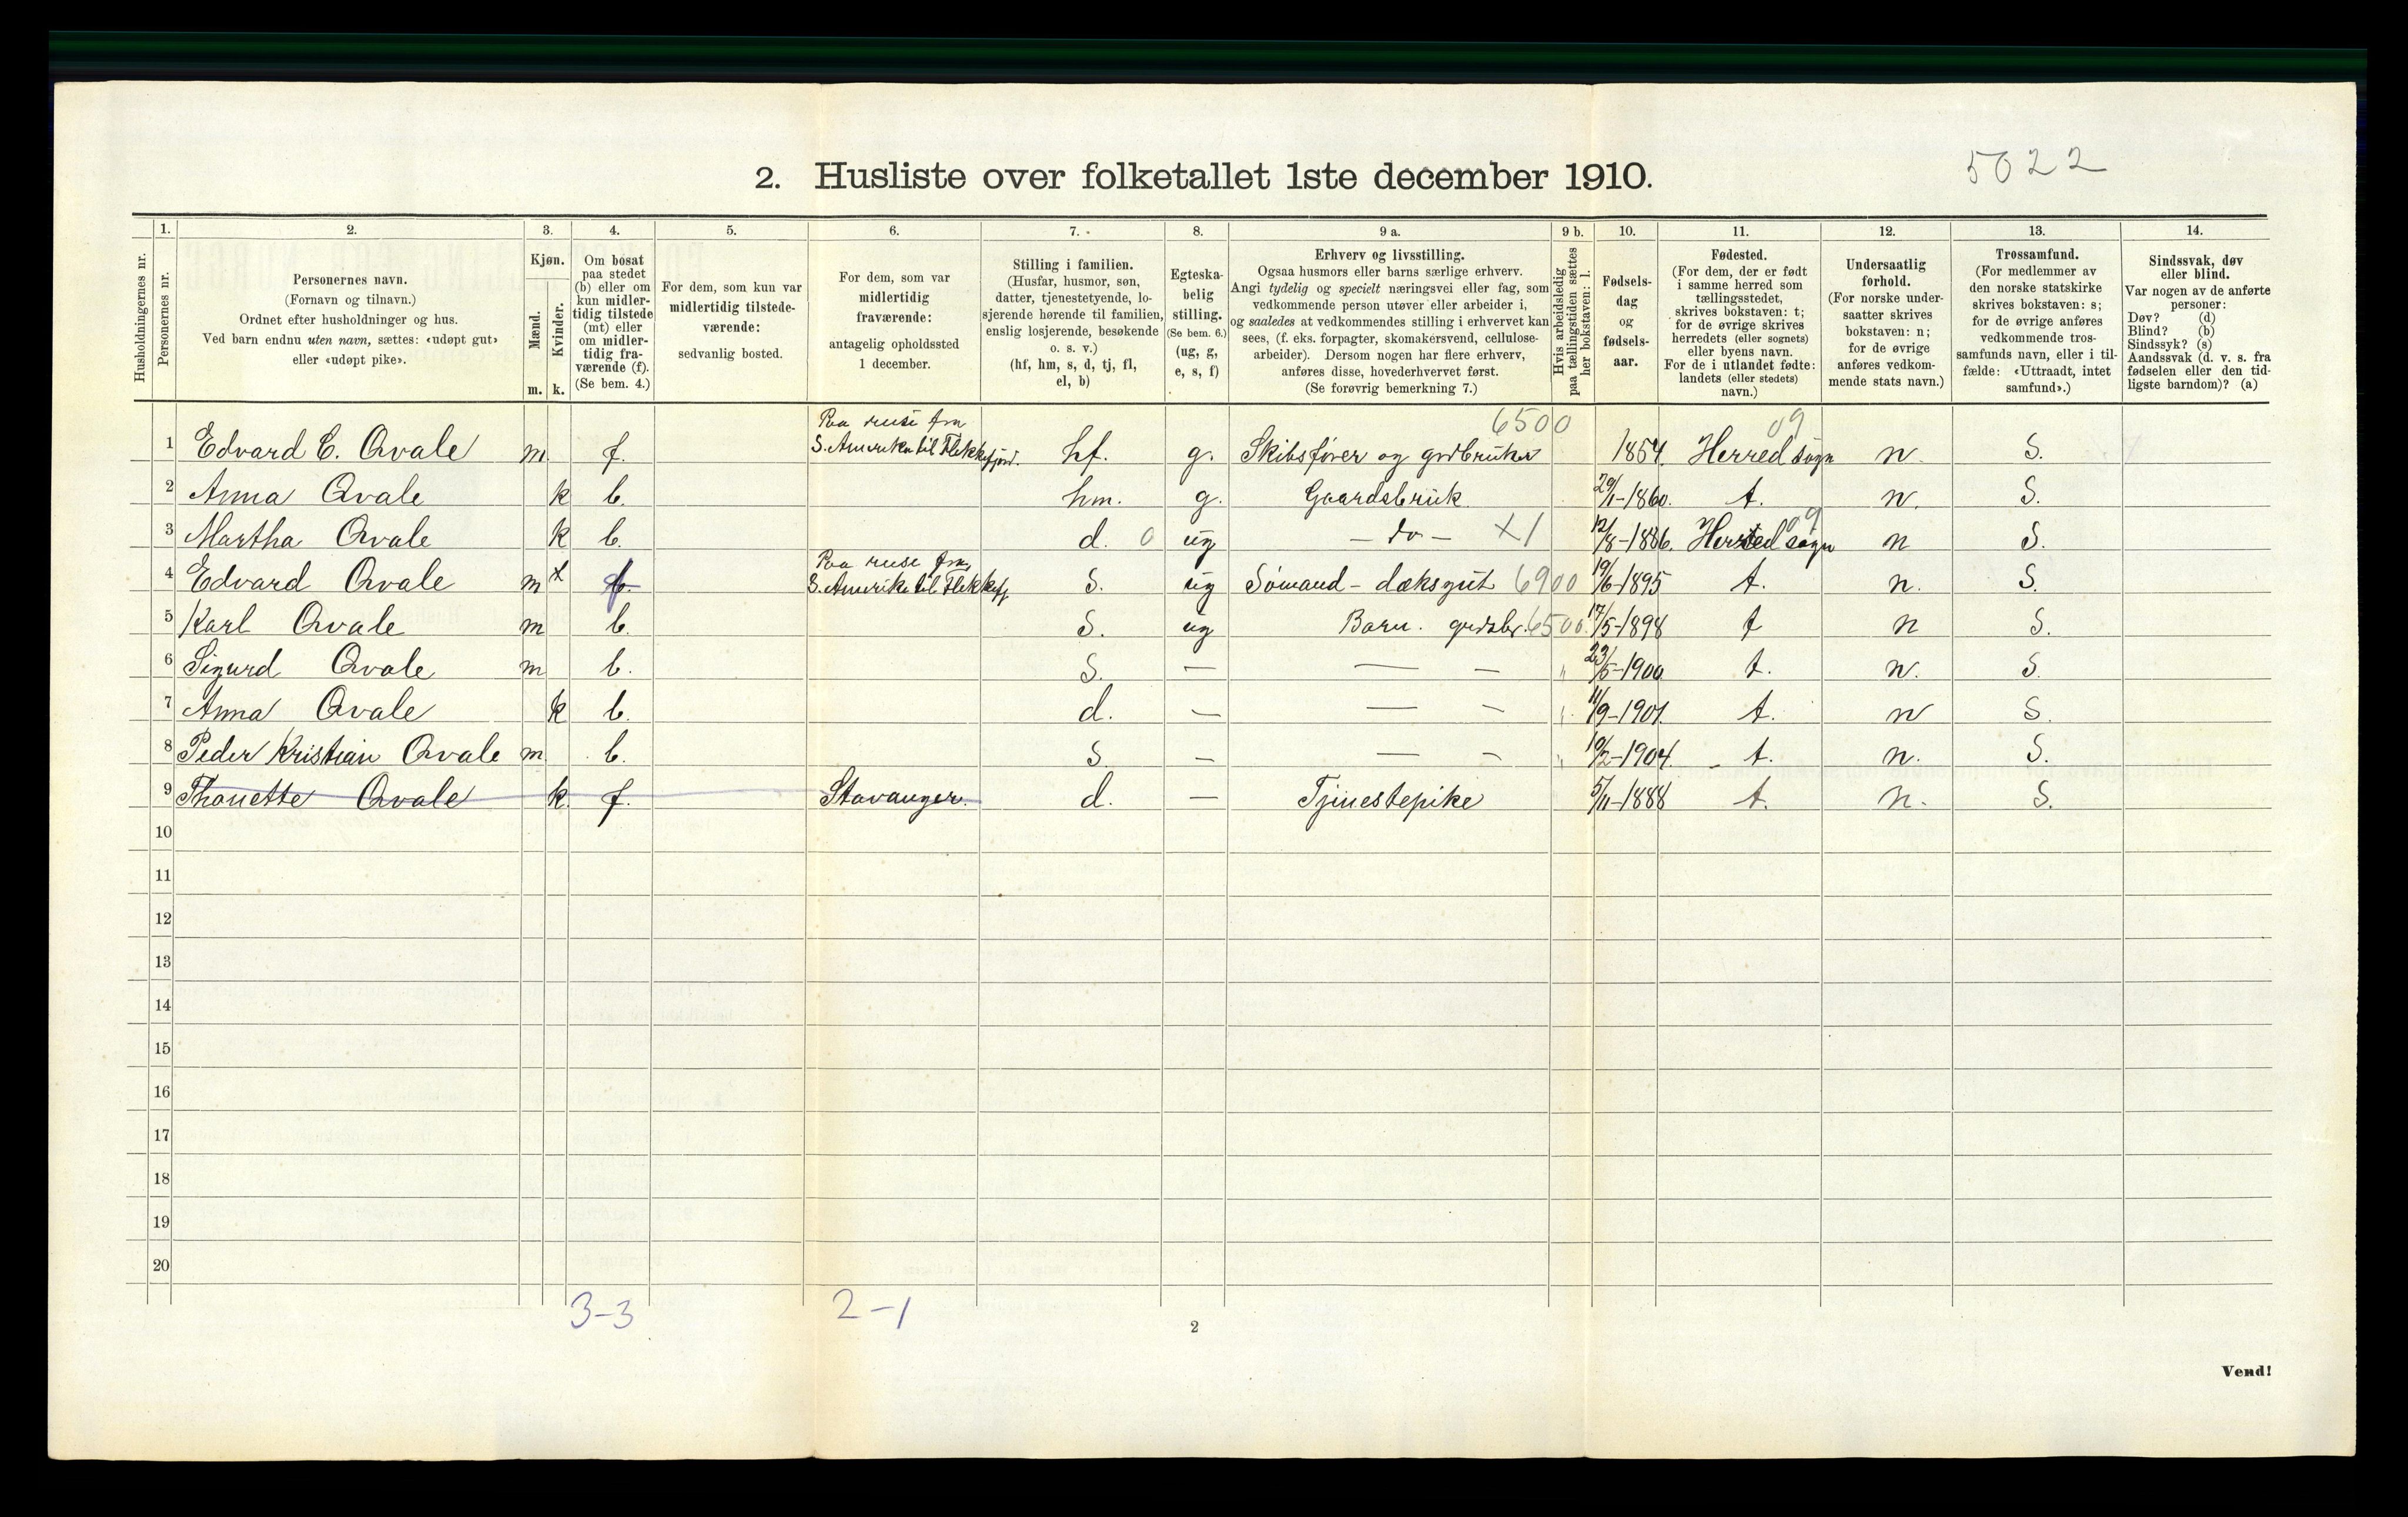 5022
2. Husliste over folketallet 1ste december 1910.
Husholdningernes nr.
1. Personernes nr.
2. Personernes navn.
(Fornavn og tilnavn.)
Ordnet efter husholdninger og hus.
Ved barn endnu uten navn, sættes: «udøpt gut»
eller «udøpt pike».
3. Kjøn.
Mænd. m.
Kvinder. k.
4. Om bosat
paa stedet
(b) eller om
kun midler-
tidig tilstede
(mt) eller
om midler-
tidig fra-
værende (f).
(Se bem. 4.)
5. For dem, som kun var
midlertidig tilstede-
værende:
sedvanlig bosted.
6. For dem, som var
midlertidig
fraværende:
antagelig opholdssted
1 december.
7. Stilling i familien.
(Husfar, husmor, søn,
datter, tjenestetyende, lo-
sjerende hørende til familien,
enslig losjerende, besøkende
o. s. v.)
(hf, hm, s, d, tj, fl,
el, b)
8. Egteska-
belig
stilling.
(Se bem. 6.)
(ug, g,
e, s, f)
9 a. Erhverv og livsstilling.
Ogsaa husmors eller barns særlige erhverv.
Angi tydelig og specielt næringsvei eller fag, som
vedkommende person utøver eller arbeider i,
og saaledes at vedkommendes stilling i erhvervet kan
sees, (f. eks. forpagter, skomakersvend, cellulose-
arbeider). Dersom nogen har flere erhverv,
anføres disse, hovederhvervet først.
(Se forøvrig bemerkning 7.)
9 b. Hvis arbeidsledig
paa tællingstiden sættes
her bokstaven: l.
10. Fødsels-
dag
og
fødsels-
aar.
11. Fødested.
(For dem, der er født
i samme herred som
tællingsstedet,
skrives bokstaven: t;
for de øvrige skrives
herredets (eller sognets)
eller byens navn.
For de i utlandet fødte:
landets (eller stedets)
navn.)
12. Undersaatlig
forhold.
(For norske under-
saatter skrives
bokstaven: n;
for de øvrige
anføres vedkom-
mende stats navn.)
13. Trossamfund.
(For medlemmer av
den norske statskirke
skrives bokstaven: s;
for de øvrige anføres
vedkommende tros-
samfunds navn, eller i til-
fælde: «Uttraadt, intet
samfund».)
14. Sindssvak, døv
eller blind.
Var nogen av de anførte
personer:
Døv? (d)
Blind? (b)
Sindssyk? (s)
Aandssvak (d. v. s. fra
fødselen eller den tid-
ligste barndom)? (a)
Paa reise fra 6500 09
1 Edvard C. Qvale m f. S. Amerika til Flekkefjord. hf. g. Skibsfører og grdbruker 1854. Herred sogn n. S.
2 Anna Qvale k b. hm. g. Gaardsbruk 29/1-1860. t. n. S.
3 Martha Qvale k b. d. 0 ug - do - X1 12/8-1886. Herred sogn 09 n S.
Paa reise fra
4 Edvard Qvale m x f. S. Amerika til Flekkefj s. ug Sømand - dæksgut 6900 19/6-1895 t. n. S.
5 Karl Qvale m b. s. ug Barn. grdsbr. 6500. 17/5-1898 t n S.
6 Sigurd Qvale m b. s. — — — " 23/5-1900 t. n. S.
7 Anna Qvale k b. d. — — — " 11/9-1901. t. n S.
8 Peder Kristian Qvale m b. s — — — " 10/2-1904. t. n. S.
9 Thonette Qvale k. f. Stavanger. d. — Tjenestepike 5/11-1888 t. n. S.
10
11
12
13
14
15
16
17
18
19
20
3-3 2-1
2
Vend!